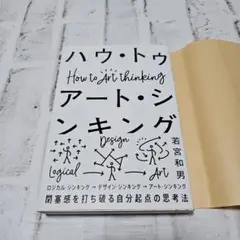 ハウ・トゥ
How to Art Thinking
アート・シ
ンキング
Design
Logical
Art
若宮和男
ロジカル シンキング → デザイン シンキング → アート・シンキング
閉塞感を打ち破る自分起点の思考法